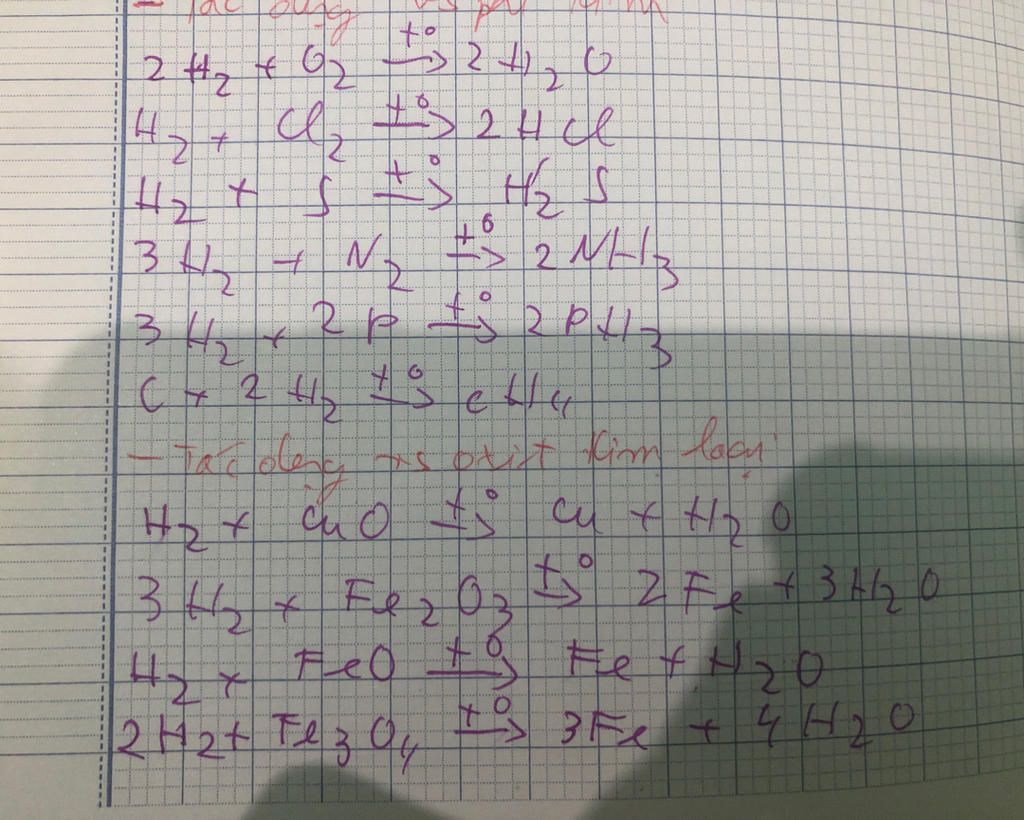 - Tác dụng vs phi kim
2H₂ + O₂ →t° 2H₂O
H₂ + Cl₂ →t° 2HCl
H₂ + S →t° H₂S
3H₂ + N₂ →t° 2NH₃
3H₂ + 2P →t° 2PH₃
C + 2H₂ →t° CH₄
- Tác dụng vs oxit kim loại
H₂ + CuO →t° Cu + H₂O
3H₂ + Fe₂O₃ →t° 2Fe + 3H₂O
H₂ + FeO →t° Fe + H₂O
2H₂ + Fe₃O₄ →t° 3Fe + 4H₂O